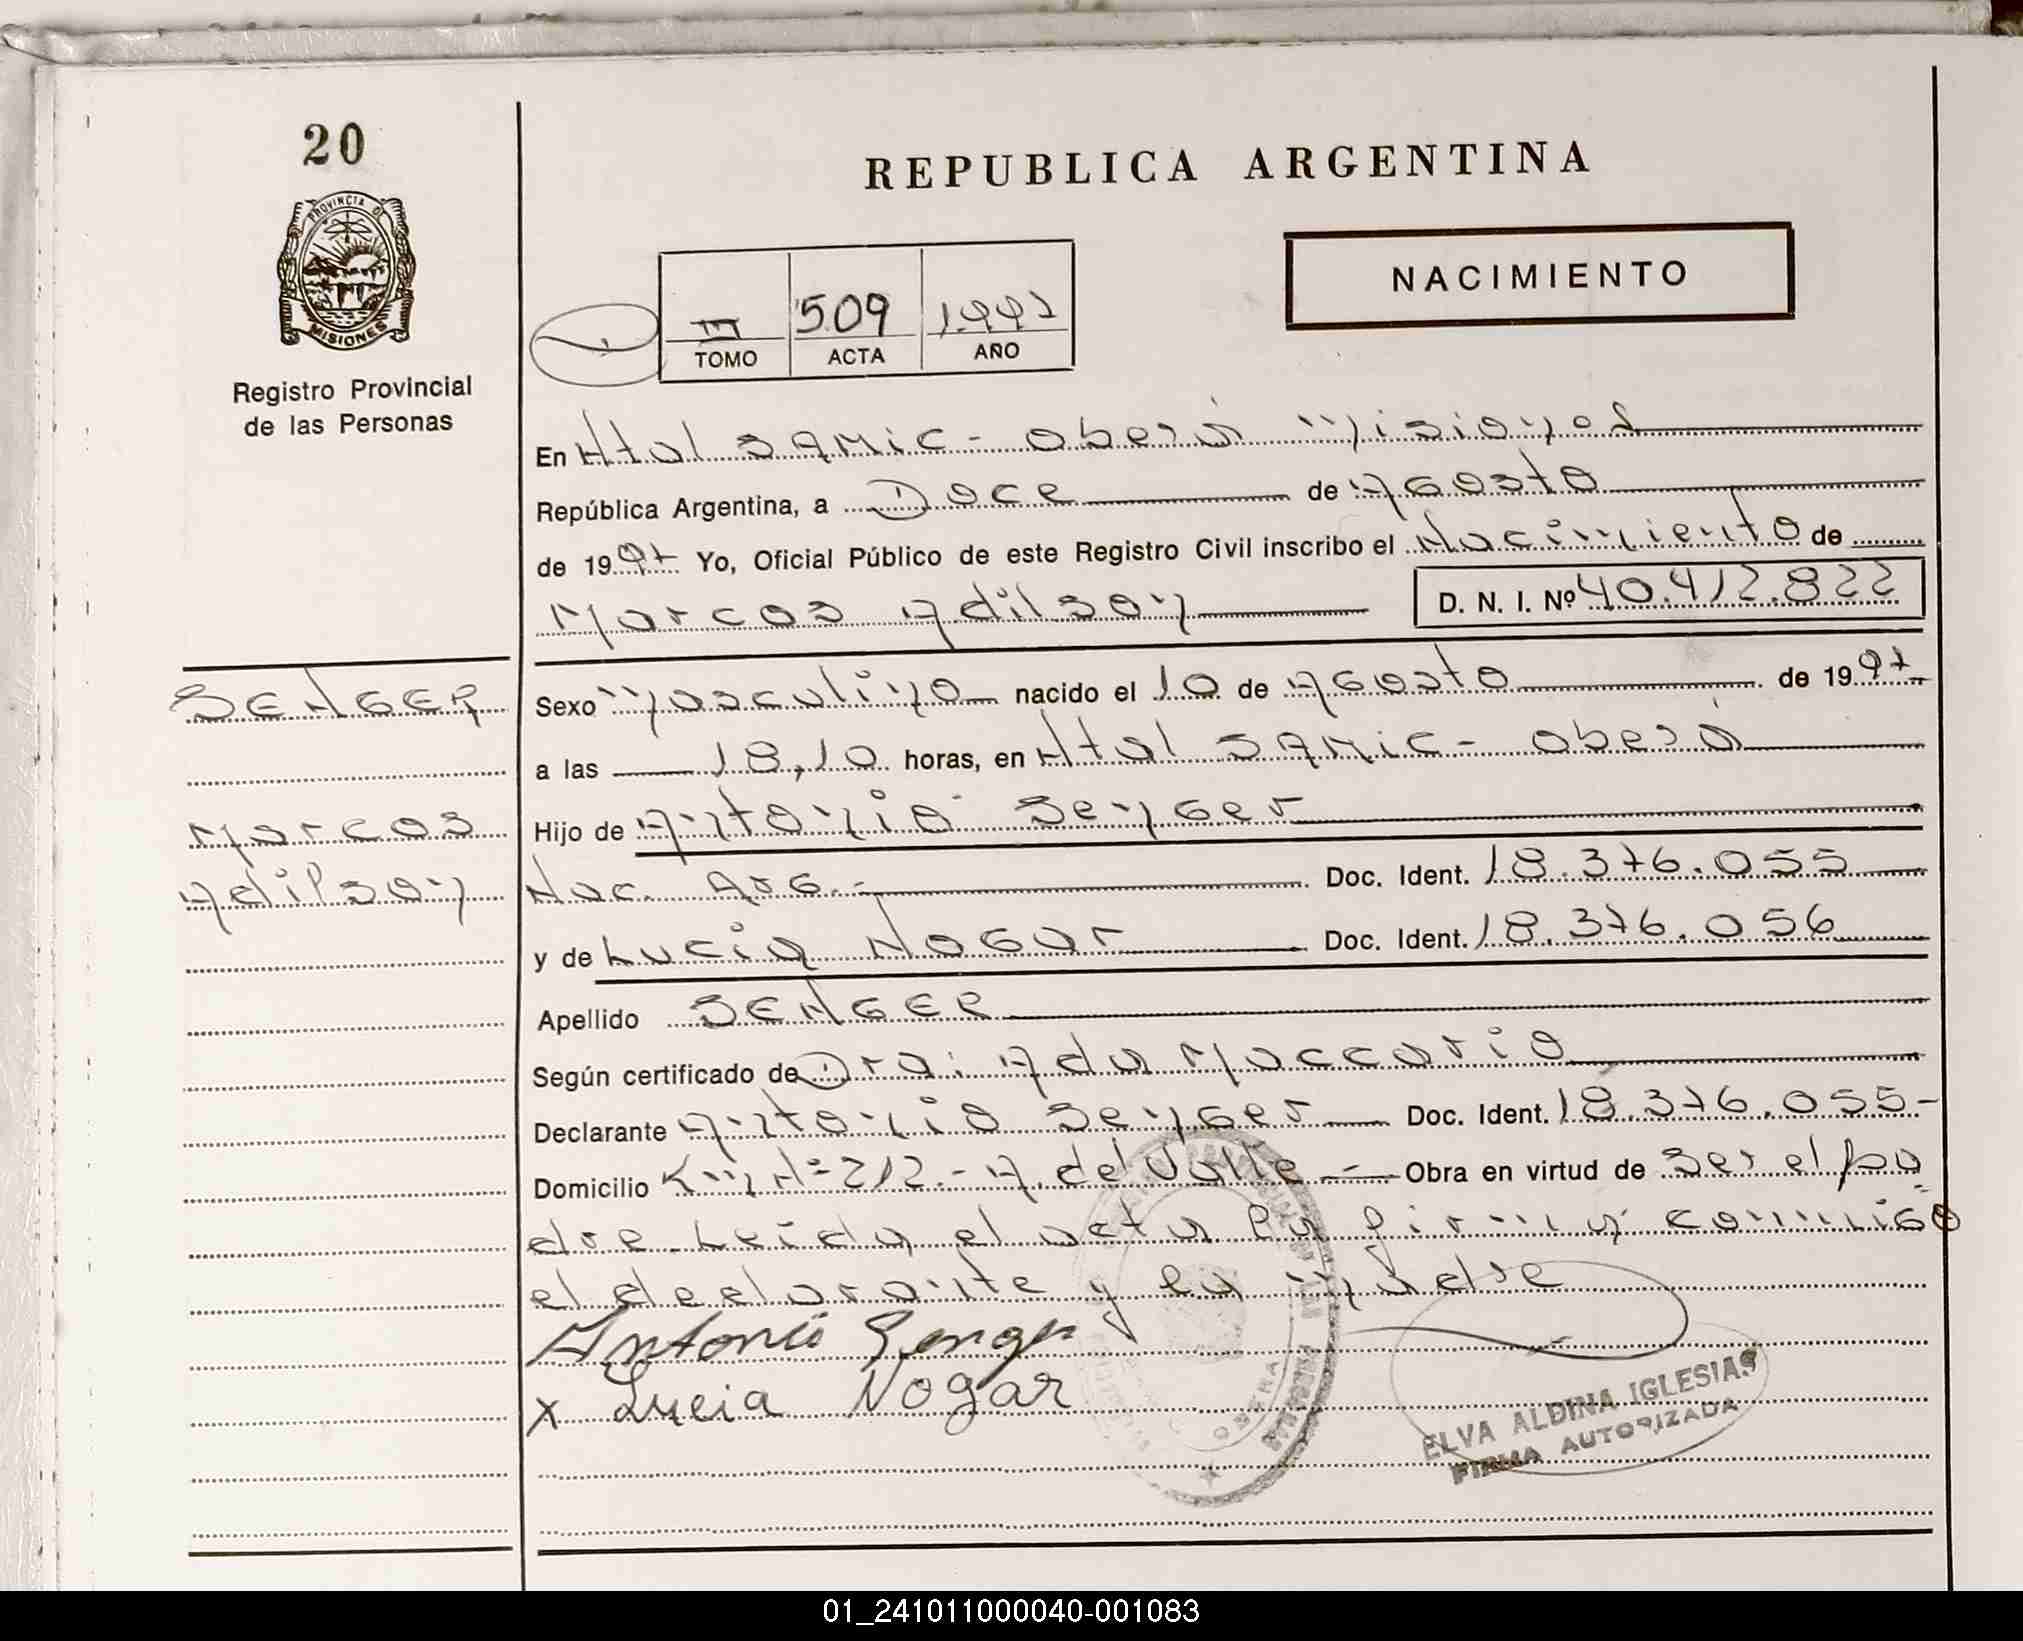 20
REPUBLICA ARGENTINA
PROVINCIA DE
MISIONES
NACIMIENTO
III 509 1.997
TOMO ACTA AÑO
Registro Provincial
de las Personas
En Htal SAMic - oberá Misiones
República Argentina, a Doce de Agosto
de 1997 Yo, Oficial Público de este Registro Civil inscribo el Nacimiento de
Marcos Adilson D. N. I. Nº 40.412.822
SENGER
Sexo Masculino nacido el 10 de Agosto de 1997
a las 18,10 horas, en Htal SAMic - oberá
Marcos
Hijo de Antonio Senger
Adilson
Nac. Arg.- Doc. Ident. 18.376.055
y de Lucia Nogar Doc. Ident. 18.376.056
Apellido SENGER
Según certificado de Dra: Ada Maccario
Declarante Antonio Senger Doc. Ident. 18.376.055-
Domicilio Km Nº 212.- A. del Valle - Obra en virtud de ser el pa
dre. Leida el acta la firma conmigo
el declarante y la madre
Antonio Senger
x Lucia Nogar
OBERA
ELVA ALDINA IGLESIAS
FIRMA AUTORIZADA
01_241011000040-001083